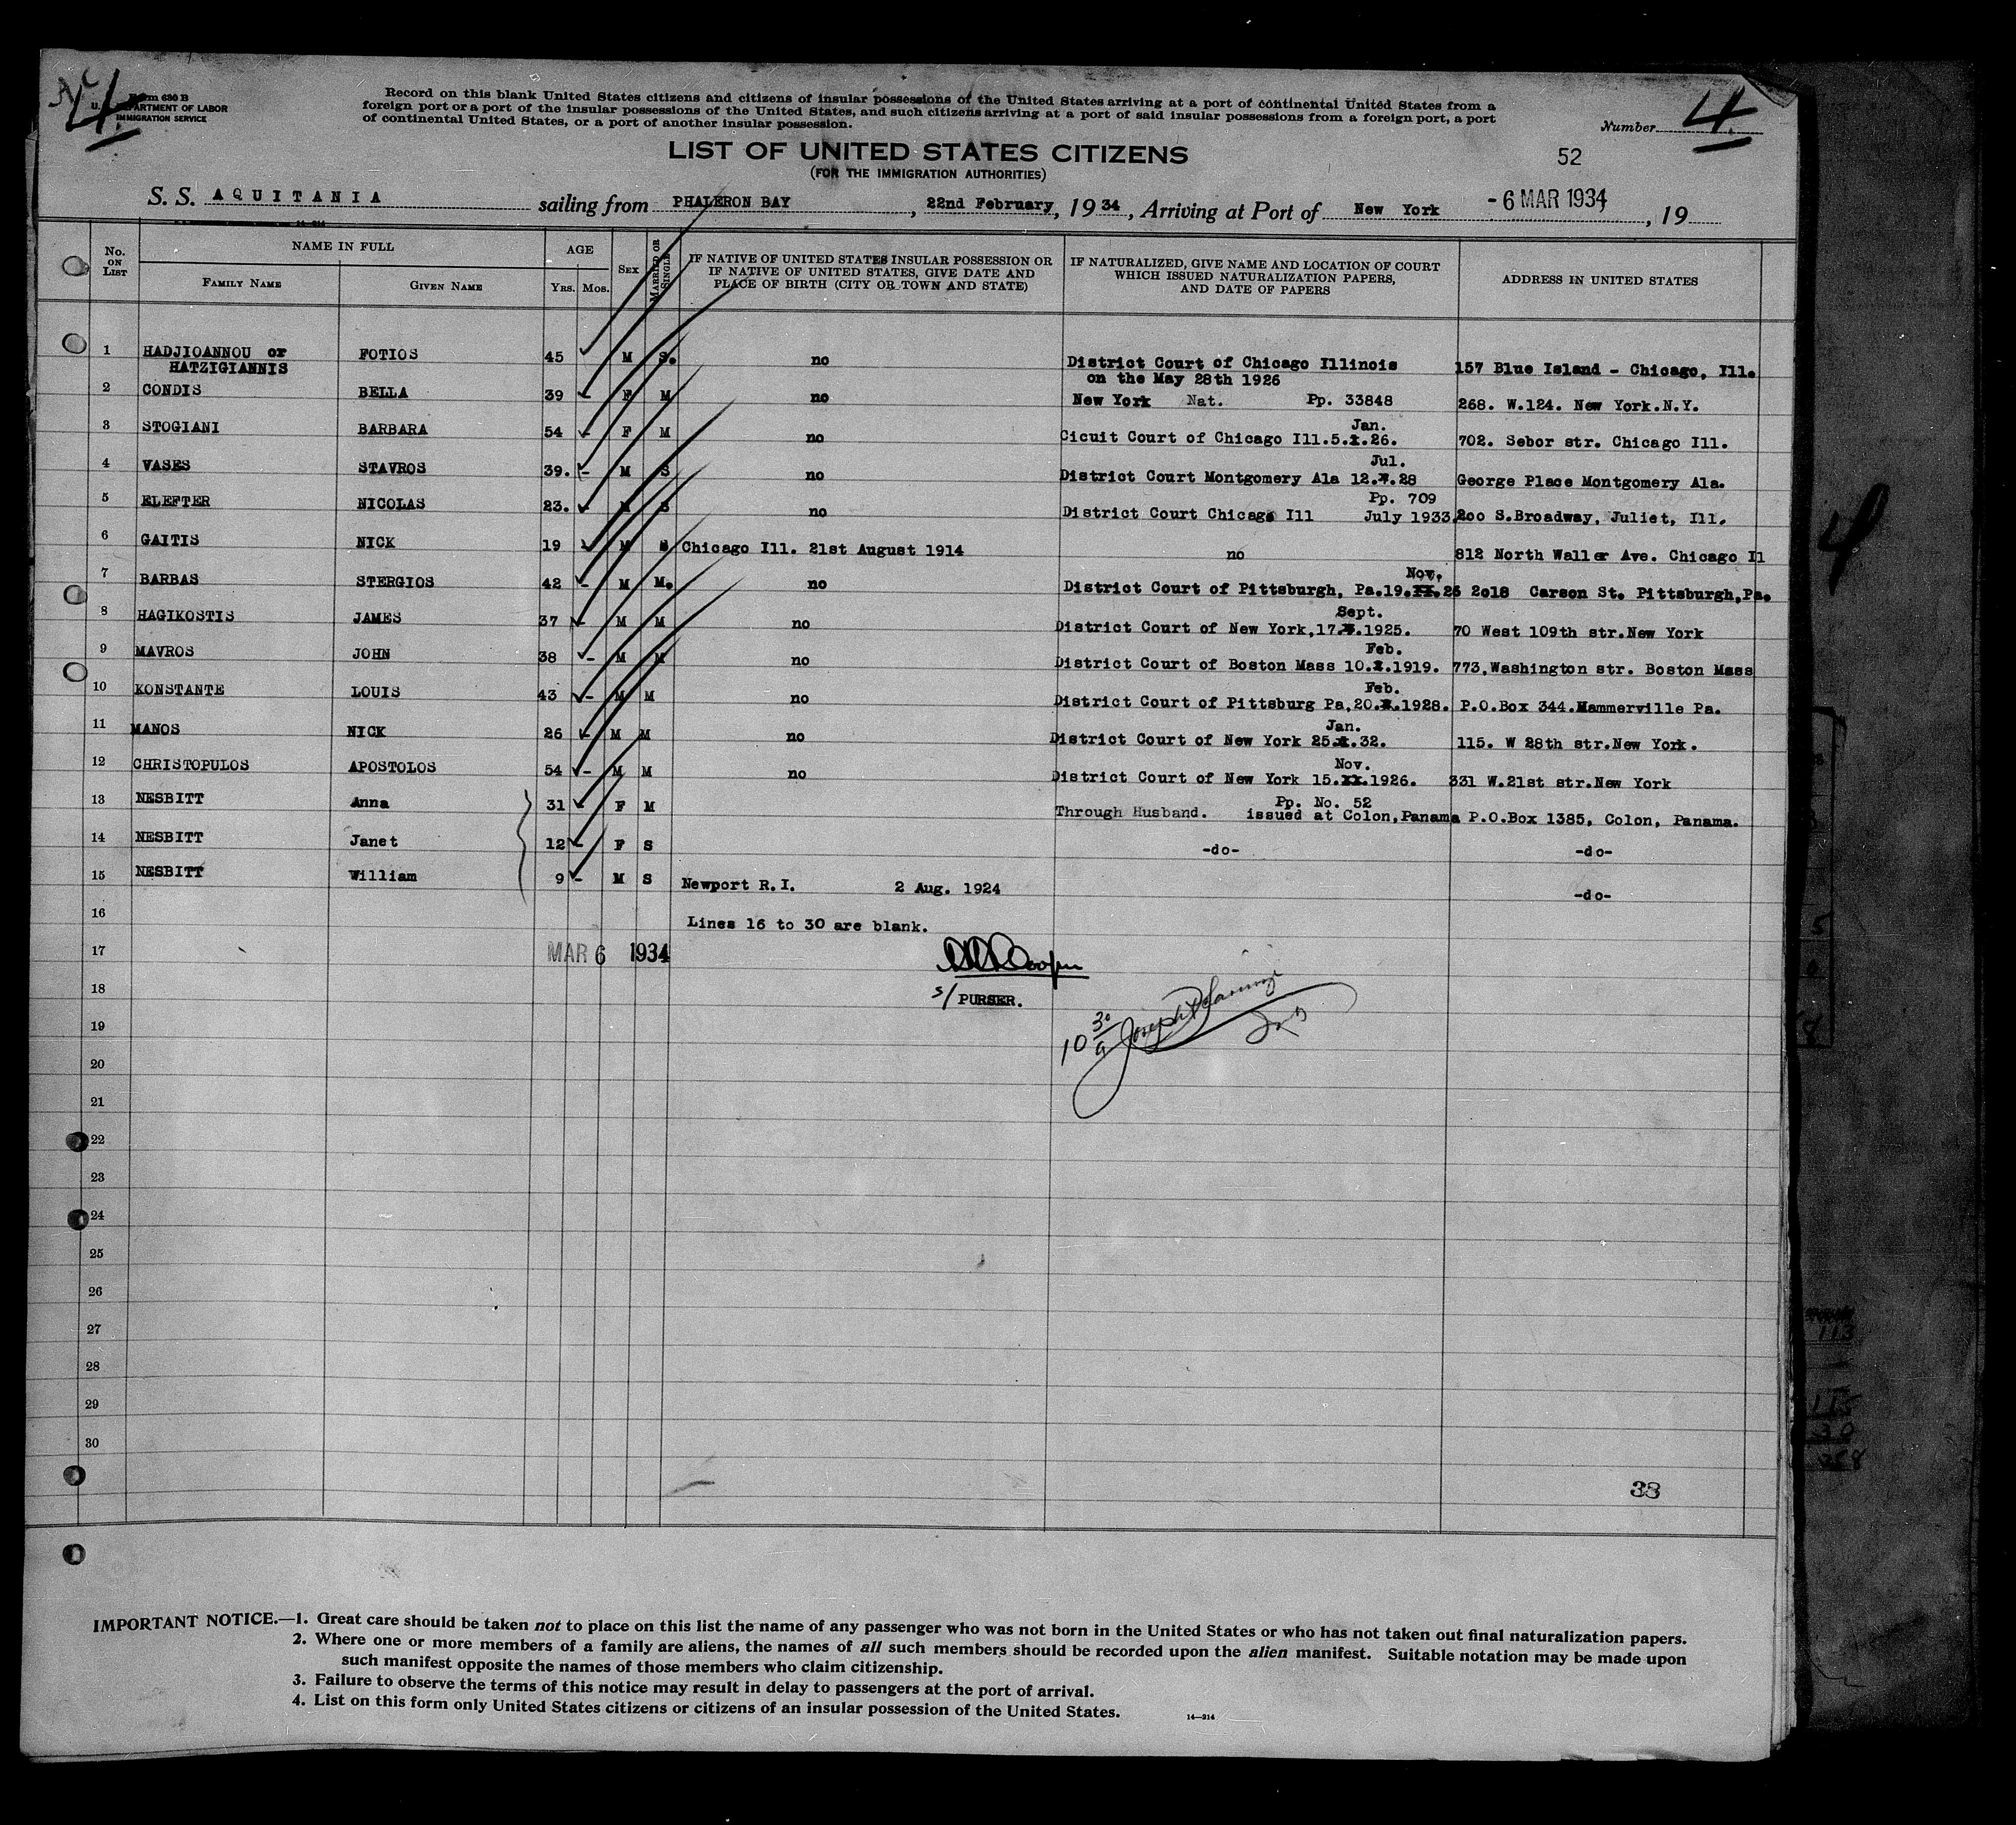 Form 630 B
U. S. DEPARTMENT OF LABOR
IMMIGRATION SERVICE
4
Record on this blank United States citizens and citizens of insular possessions of the United States arriving at a port of continental United States from a
foreign port or a port of the insular possessions of the United States, and such citizens arriving at a port of said insular possessions from a foreign port, a port
of continental United States, or a port of another insular possession.
Number 4.
LIST OF UNITED STATES CITIZENS
52
(FOR THE IMMIGRATION AUTHORITIES)
S. S. AQUITANIA sailing from PHALERON BAY, 22nd February, 1934, Arriving at Port of New York -6 MAR 1934, 19
No. ON LIST
NAME IN FULL
FAMILY NAME
GIVEN NAME
AGE
YRS. MOS.
SEX
MARRIED OR SINGLE
IF NATIVE OF UNITED STATES INSULAR POSSESSION OR
IF NATIVE OF UNITED STATES, GIVE DATE AND
PLACE OF BIRTH (CITY OR TOWN AND STATE)
IF NATURALIZED, GIVE NAME AND LOCATION OF COURT
WHICH ISSUED NATURALIZATION PAPERS,
AND DATE OF PAPERS
ADDRESS IN UNITED STATES
1 HADJIOANNOU or FOTIOS 45 M S. no District Court of Chicago Illinois 157 Blue Island - Chicago, Ill.
HATZIGIANNIS on the May 28th 1926
2 CONDIS BELLA 39 - F M no New York Nat. Pp. 33848 268. W.124. New York.N.Y.
Jan.
3 STOGIANI BARBARA 54 - F M no Cicuit Court of Chicago Ill.5.I.26. 702. Sebor str. Chicago Ill.
Jul.
4 VASES STAVROS 39. - M S no District Court Montgomery Ala 12.7.28 George Place Montgomery Ala.
Pp. 709
5 ELEFTER NICOLAS 23. - M S no District Court Chicago Ill July 1933. 200 S.Broadway, Juliet, Ill.
6 GAITIS NICK 19 - M S Chicago Ill. 21st August 1914 no 812 North Waller Ave. Chicago Il
Nov.
7 BARBAS STERGIOS 42 - M M. no District Court of Pittsburgh, Pa.19.XI.26 2018 Carson St. Pittsburgh,Pa.
Sept.
8 HAGIKOSTIS JAMES 37 - M M no District Court of New York,17. .1925. 70 West 109th str.New York
Feb.
9 MAVROS JOHN 38 - M M no District Court of Boston Mass 10. .1919. 773,Washington str. Boston Mass
Feb.
10 KONSTANTE LOUIS 43 - M M no District Court of Pittsburg Pa,20. .1928. P.O.Box 344.Hammerville Pa.
Jan.
11 MANOS NICK 26 - M M no District Court of New York 25. .32. 115. W 28th str.New York.
Nov.
12 CHRISTOPULOS APOSTOLOS 54 - M M no District Court of New York 15.XI.1926. 331 W.21st str.New York
Pp. No. 52
13 NESBITT Anna 31 - F M Through Husband. issued at Colon,Panama P.O.Box 1385, Colon, Panama.
14 NESBITT Janet 12 - F S -do- -do-
15 NESBITT William 9 - M S Newport R.I. 2 Aug. 1924 -do-
16 Lines 16 to 30 are blank.
17 MAR 6 1934
18 s/ PURSER.
19 10 30/a
20
21
22
23
24
25
26
27
28
29
30
38
IMPORTANT NOTICE.—1. Great care should be taken not to place on this list the name of any passenger who was not born in the United States or who has not taken out final naturalization papers.
2. Where one or more members of a family are aliens, the names of all such members should be recorded upon the alien manifest. Suitable notation may be made upon
such manifest opposite the names of those members who claim citizenship.
3. Failure to observe the terms of this notice may result in delay to passengers at the port of arrival.
4. List on this form only United States citizens or citizens of an insular possession of the United States.
14—314
4
113